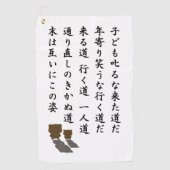 子ども叱るな来た道だ
年寄り笑うな行く道だ
来る道 行く道 一人道
通り直しのきかぬ道
末は互いにこの姿